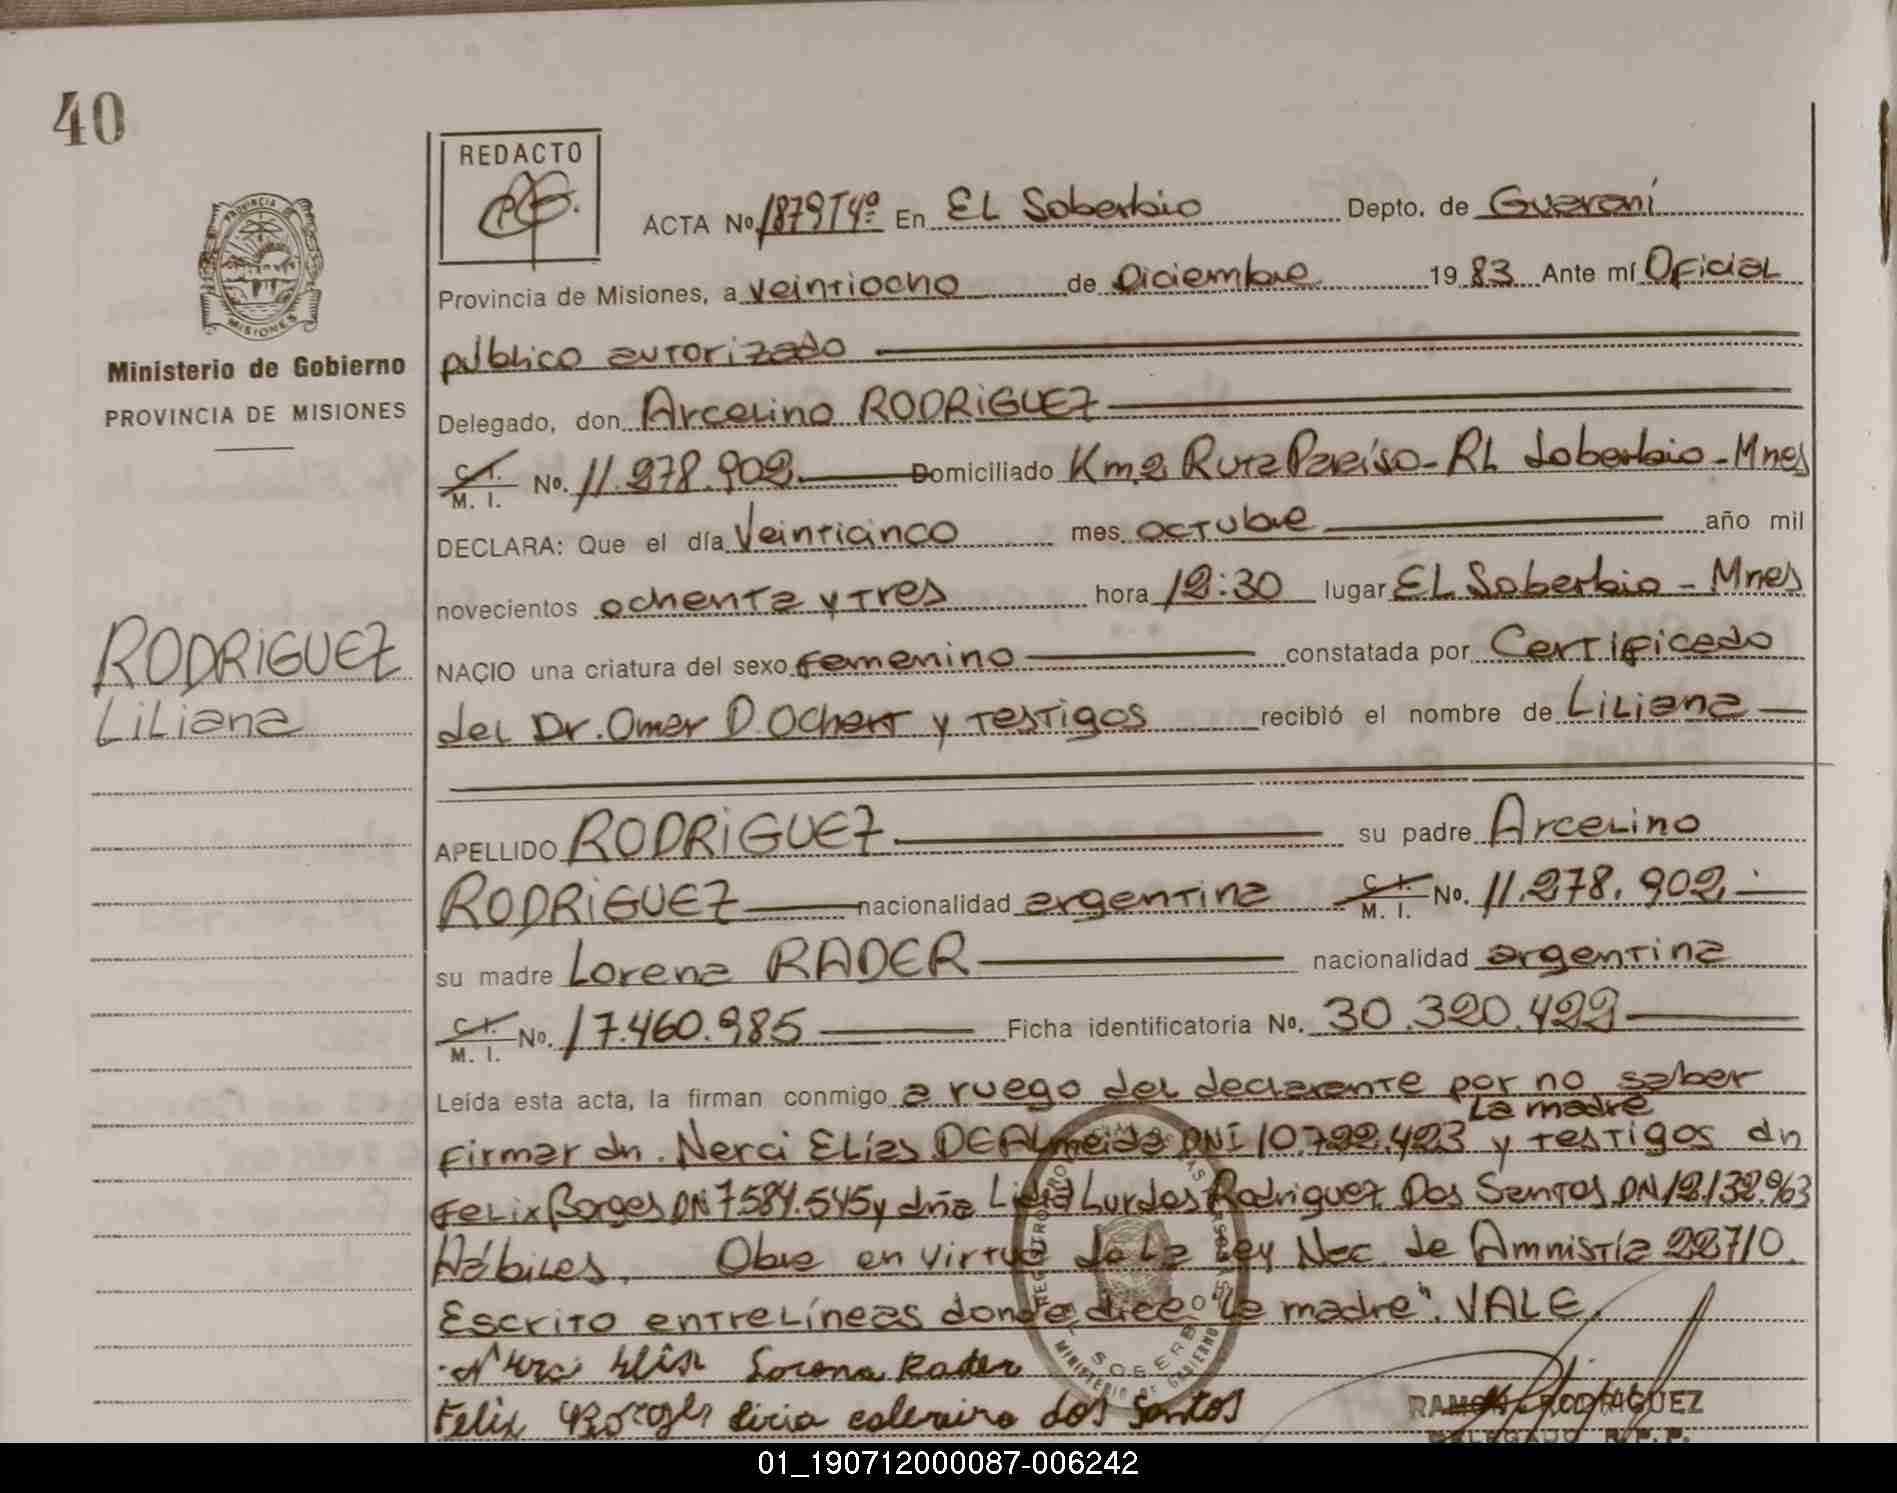 40
REDACTO
ACTA No. 1879T4º En EL Soberbio Depto. de Guaraní
Provincia de Misiones, a veintiocho de Diciembre 1983 Ante mí Oficial
público autorizado
Delegado, don Arcelino RODRIGUEZ
C. I. M. I. No. 11.278.902 Domiciliado Km 2 Ruta Paraíso - RL Soberbio - Mnes
DECLARA: Que el día Veinticinco mes octubre año mil
novecientos ochenta y tres hora 12:30 lugar EL Soberbio - Mnes
NACIO una criatura del sexo femenino constatada por Certificado
del Dr. Omar D. Ochert y testigos recibió el nombre de Liliana
APELLIDO RODRIGUEZ su padre Arcelino
RODRIGUEZ nacionalidad argentina C. I. M. I. No. 11.278.902
su madre Lorena RADER nacionalidad argentina
C. I. M. I. No. 17.460.985 Ficha identificatoria No. 30.320.422
Leída esta acta, la firman conmigo a ruego del declarante por no saber
La madre
firmar dn. Nerci Elías DE ALmeida DNI 10.722.423 y testigos dn
Felix Borges DN 7584.545 y dña Lurdes Rodriguez Dos Santos DN 12.132.963
Hábiles. Obre en virtud de La Ley Nac. de Amnistía 22710.
Escrito entrelíneas donde dice "La madre". VALE.
Lorena Rader
Felix Borges dos Santos
RAMON RODRIGUEZ
DELEGADO R.P.P.
PROVINCIA DE MISIONES
Ministerio de Gobierno
PROVINCIA DE MISIONES
RODRIGUEZ
Liliana
MINISTERIO DE GOBIERNO
SOBERBIO
01_190712000087-006242